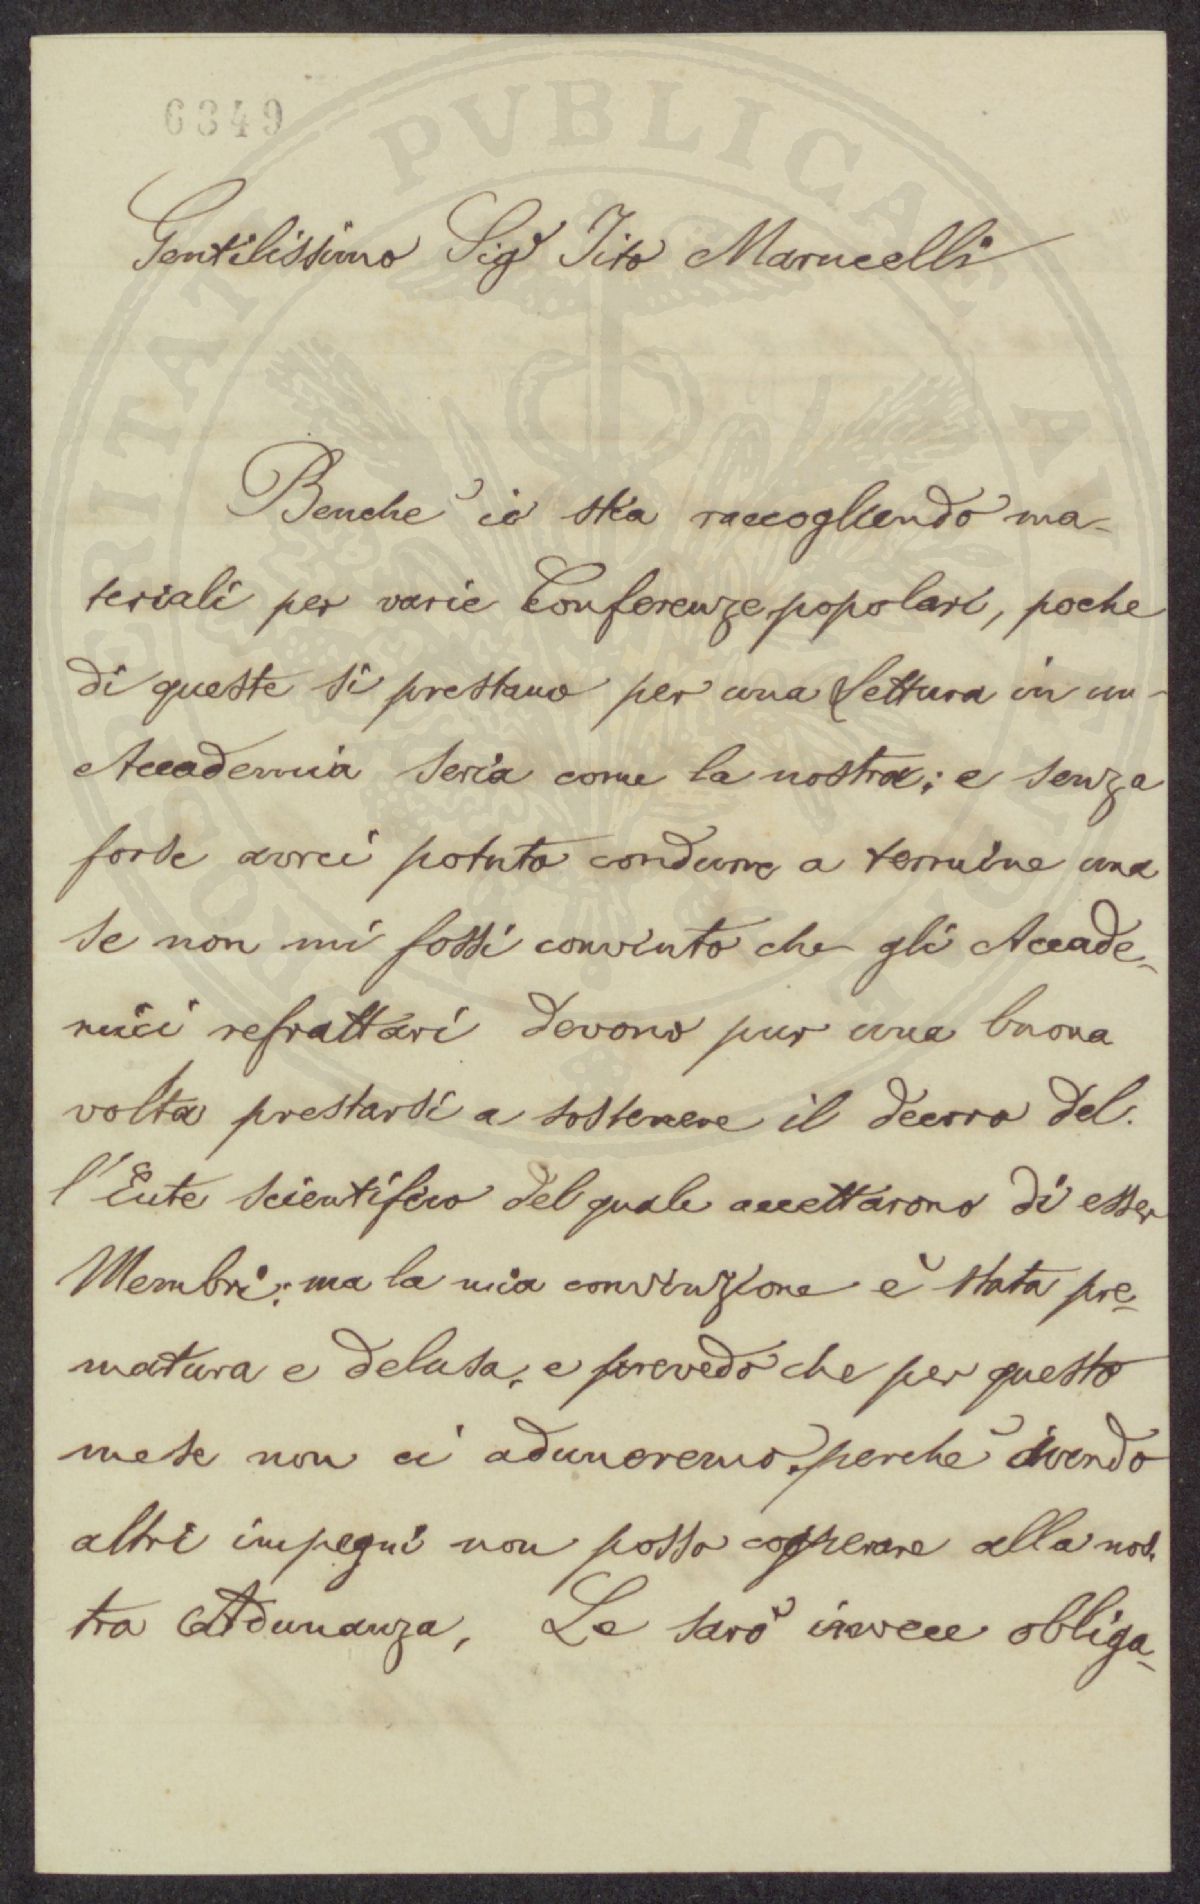 6349
PVBLICAE
PROSPERITATI
Gentilissimo Sigr Tito Marucelli
Benche io stia raccogliendo ma-
teriali per varie Conferenze popolari, poche
di queste si prestano per una Lettura in un-
Accademia seria come la nostra; e senza
forse avrei potuto condurne a termine una
se non mi fossi convinto che gli Accade-
mici refrattari devono pur una buona
volta prestarsi a sostenere il decoro del-
l'Ente scientifico del quale accettarono di esser
Membri; ma la mia convinzione è stata pre-
matura e delusa, e prevedo che per questo
mese non ci aduneremo, perchè avendo
altri impegni non posso cooperare alla nos-
tra Adunanza, Le sarò invece obliga-